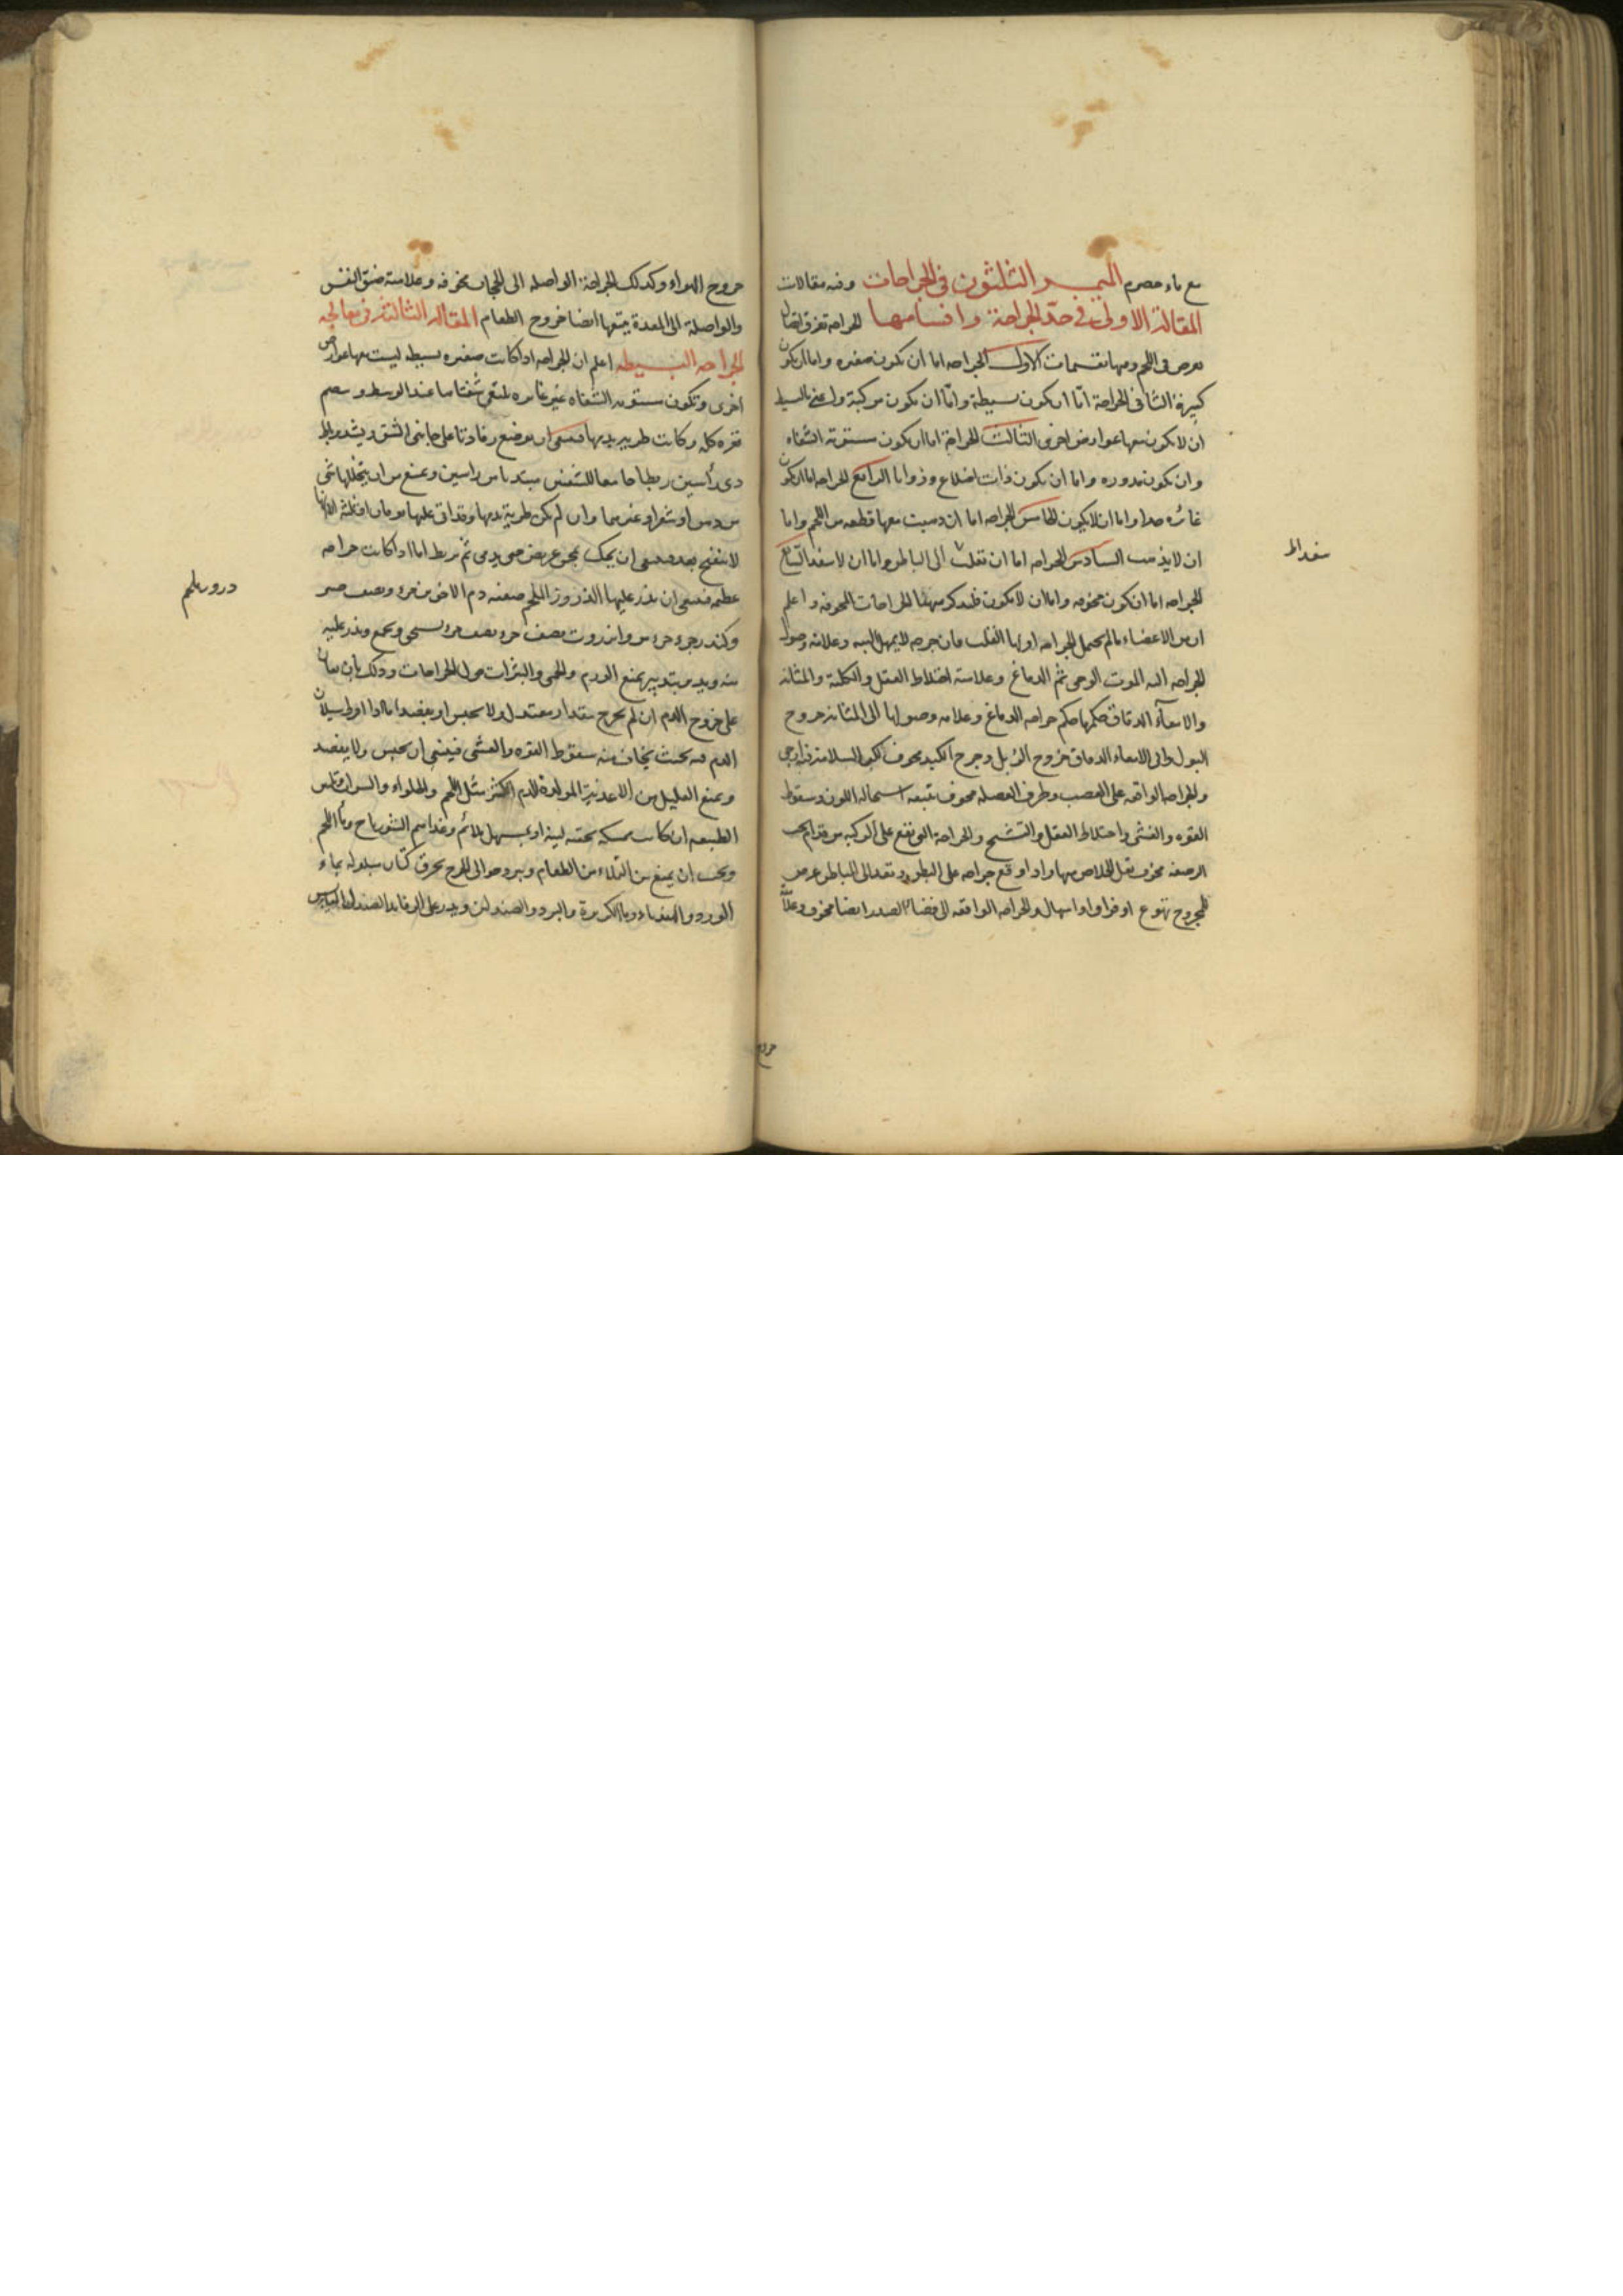 مع ماء حصرم الميمر الثلثون فى الجراحات وفيه مقالات
المقالة الاولى فى حدّ الجراحة واقسامها الجراحه تفرق اتصال
يعرض فى اللحم ومنها تقسيمات الاول الجراحه اما ان تكون صغيره واما ان تكون
كبيرة الثانى الجراحة امّا ان تكون بسيطة وامّا ان تكون مركبة واعنى بالبسيط
ان لا تكون معها عوارض اخرى الثالث الجراحة اما ان تكون مستوية الشفاه
وان تكون مدوره واما ان تكون ذات اضلاع وزوايا الرابع الجراحه اما ان تكون
غائره جدا واما ان لا يكون الخامس الجراحه اما ان ذهبت معها قطعه من اللحم واما
ان لا يذهب السادس الجراحه اما ان نفذت الى الباطن واما ان لا تنفذ السّابع
الجراحه اما ان تكون مخوفه واما ان لا تكون فلنذكر ههنا الجراحات المخوفه واعلم
ان من الاعضاء ما لم يحتمل الجراحه اولها القلب فان جرحه لا يمهل البته وعلامة وصول
الجراحه اليه الموت الوحى ثم الدماغ وعلامته اختلاط العقل والكلية والمثانه
والامعاء الدقاق حكمها حكم جراحه الدماغ وعلامه وصولها الى المثانه خروج
البول والى الامعاء الدقاق خروج الزبل وجرح الكبد مخوف لكن السلامة فيه ارجى
والجراحه الواقعه على العصب وطرف العضله مخوف تتبعه استحاله اللون وسقوط
القوه والغشى واختلاط العقل والتشنج والجراحة التى تقع على الركبه من قدام تحت
الرضفه مخوف قل الخلاص منها واذا وقع جراحه على البطن ونفذ الى الباطن عرض
للمجروح تهوع او فواق او اسهال والجراحه الواقعه الى فضاء الصدر ايضا مخوف وعلامته
سفداط
خروج
خروج الهواء وكذلك الجراحة الواصله الى الحجاب مخوفه وعلامته ضيق النفس
والواصلة الى المعدة يتبعها ايضا خروج الطعام المقالة الثالثة فى معالجه
الجراحه البسيطه اعلم ان الجراحه اذا كانت صغيره بسيطه ليست معها عوارض
اخرى وتكون مستويه الشفاه غير غايره تلتقى شفتاها عند الوسط و
قعره كله وكانت طريه بدمها فينبغى ان يوضع رفادتا على جانبى الشق ويشد برباط
ذى رأسين ربطا جامعا للشفتين مبتديا من راسين ويمنع من ان يتخللها شى
من دهن او شعر او غيرهما وان لم تكن طرية بدمها وقد اتى عليها يومان او ثلثة
لا تنفتح بعد فينبغى ان يحك حتى يدمى ثم يربط اما اذا كانت جراحه
عظيمه فينبغى ان يذر عليها الذرور الملحم صفته دم الاخوين جزء ونصف صبر
وكندر جزء جزء مر وانزروت نصف جزء نصف جزء يسحق ويجمع ويذر عليه
منه ويدبر بتدبير يمنع الورم والحمى والبثرات حول الجراحات وذلك بان يعان
على خروج الدم ان لم يخرج بمقدار معتدل ولا يحبس او يفصد اما اذا افرط سيلان
الدم فيه بحيث يخاف منه سقوط القوه والغشى فينبغى ان يحبس ولا يفصد
ويمنع العليل من الاغذية المولدة للدم الكثير مثل اللحم والحلواء والشراب وتلين
الطبيعه ان كانت ممسكه بحقنه لينة او بمسهل ملائم وغذاءهم الشورباج وماء اللحم
ويجب ان يمنع من التملاء من الطعام ويبرد حوالى الجرح بخرق كتان مبلوله بماء
الورد والهندباء وماء الكزبرة والبرد والصندلين
ذرور ملحم